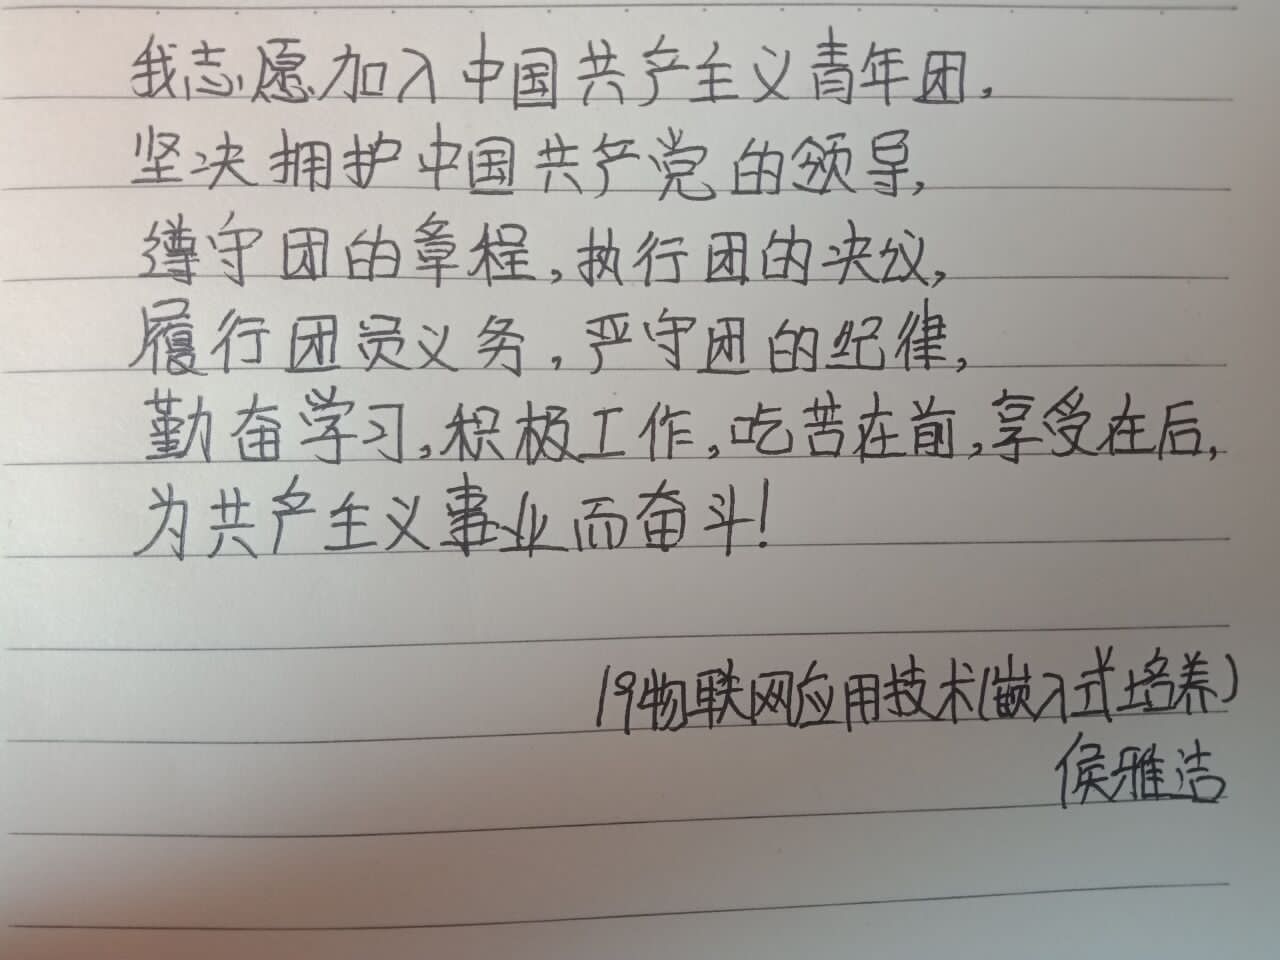 我志愿加入中国共产主义青年团,
坚决拥护中国共产党的领导,
遵守团的章程,执行团的决议,
履行团员义务,严守团的纪律,
勤奋学习,积极工作,吃苦在前,享受在后,
为共产主义事业而奋斗!
19物联网应用技术(嵌入式培养)
侯雅洁